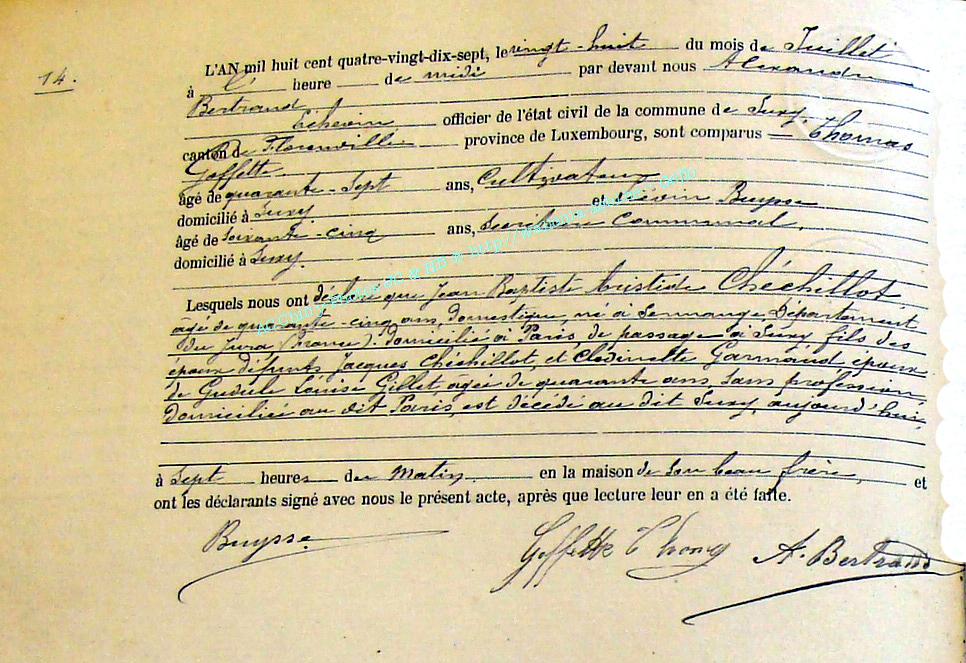 14.
L'AN mil huit cent quatre-vingt-dix-sept, le vingt-huit du mois de Juillet
à heure de midi par devant nous Alexandre
Bertrand
Echevin officier de l'état civil de la commune de Suxy,
canton de Florenville province de Luxembourg, sont comparus Thomas
Goffette
âgé de quarante-sept ans, Cultivateur
domicilié à Suxy. et Liévin Buysse
âgé de soixante-cinq ans, Secrétaire Communal,
domicilié à Suxy.
Lesquels nous ont déclaré que Jean Baptiste Aristide Chéchillot
agé de quarante-cinq ans, domestique, né à Sermange Département
du Jura (France). Domicilié à Paris, de passage à Suxy fils des
époux défunts Jacques Chéchillot, et Clodinette Garmaud époux
de Gudule Louise Gillet agée de quarante ans, sans profession,
Domiciliée au dit Paris, est décédé au dit Suxy, aujourd'hui,
à sept heures du matin en la maison de son beau frère, et
ont les déclarants signé avec nous le présent acte, après que lecture leur en a été faite.
Buysse Goffette Thomas A. Bertrand